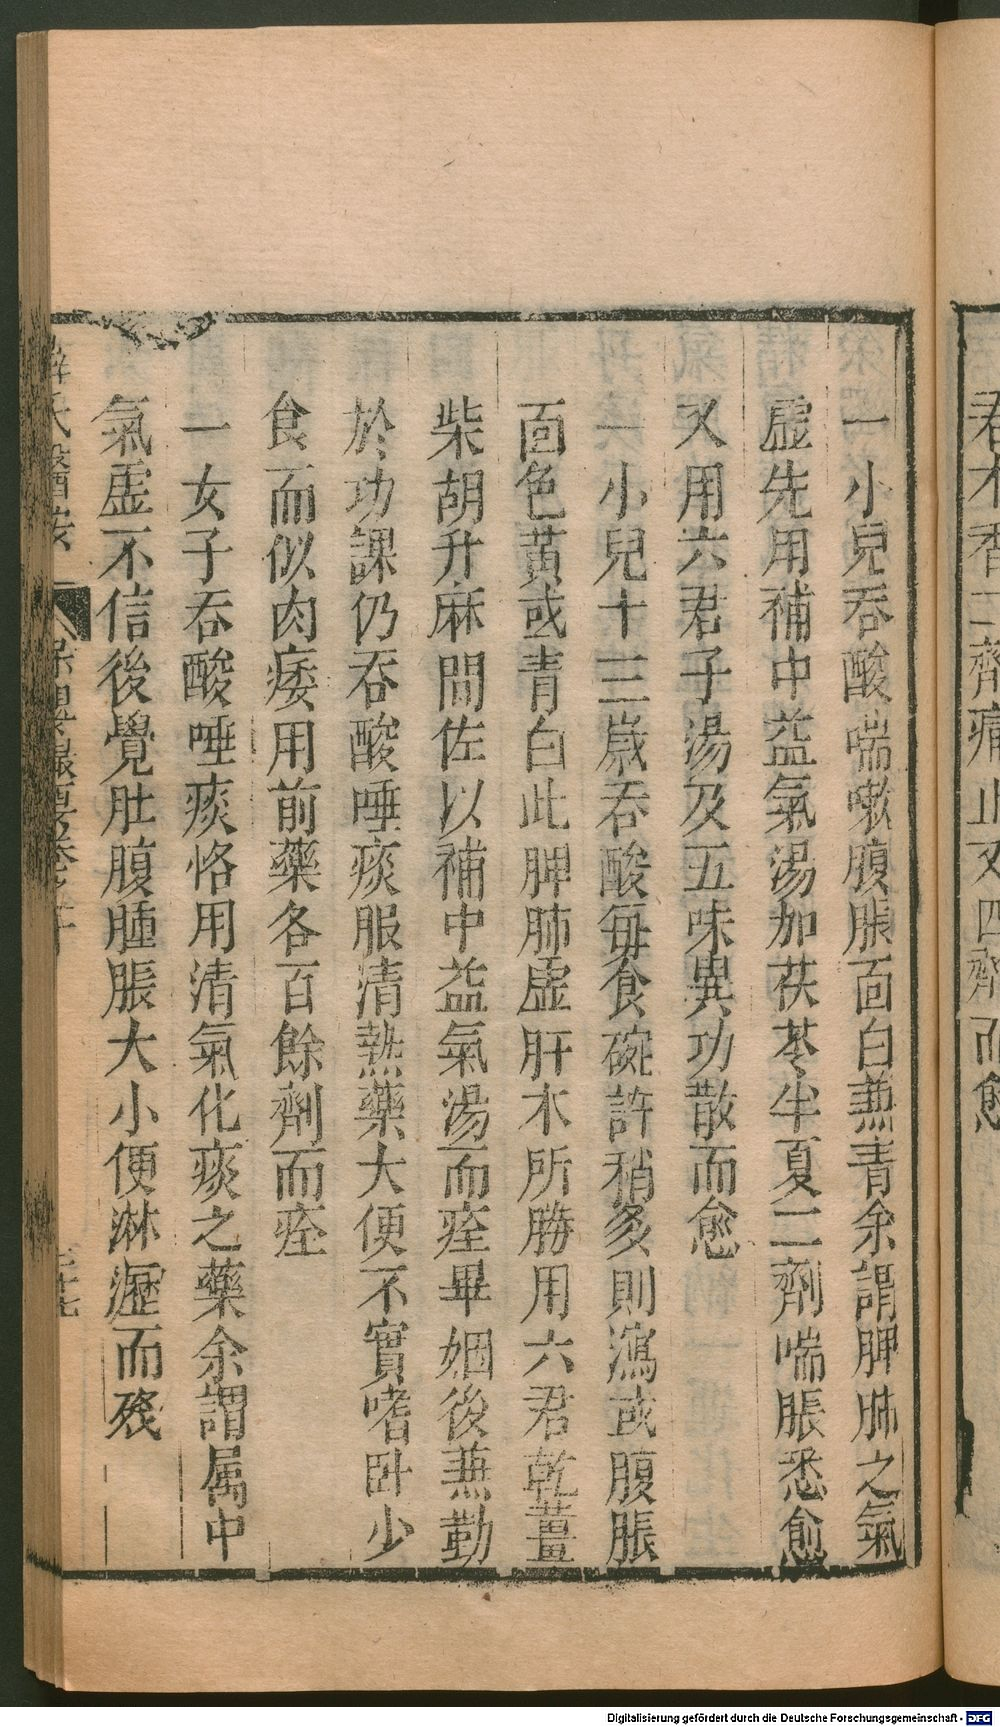 君木香二劑痛止又四劑而愈
一小兒吞酸喘嗽腹脹面白兼青余謂脾肺之氣
虛先用補中益氣湯加茯苓半夏二劑喘脹悉愈
又用六君子湯及五味異功散而愈
一小兒十三歲吞酸每食碗許稍多則瀉或腹脹
面色黃或青白此脾肺虛肝木所勝用六君乾薑
柴胡升麻間佐以補中益氣湯而痊畢姻後兼勤
於功課仍吞酸唾痰服清熱藥大便不實嗜卧少
食而似肉痿用前藥各百餘劑而痊
一女子吞酸唾痰恪用清氣化痰之藥余謂属中
氣虛不信後覺肚腹腫脹大小便淋瀝而歿
薛氏醫案
保嬰撮要卷之十
二十七
Digitalisierung gefördert durch die Deutsche Forschungsgemeinschaft - DFG